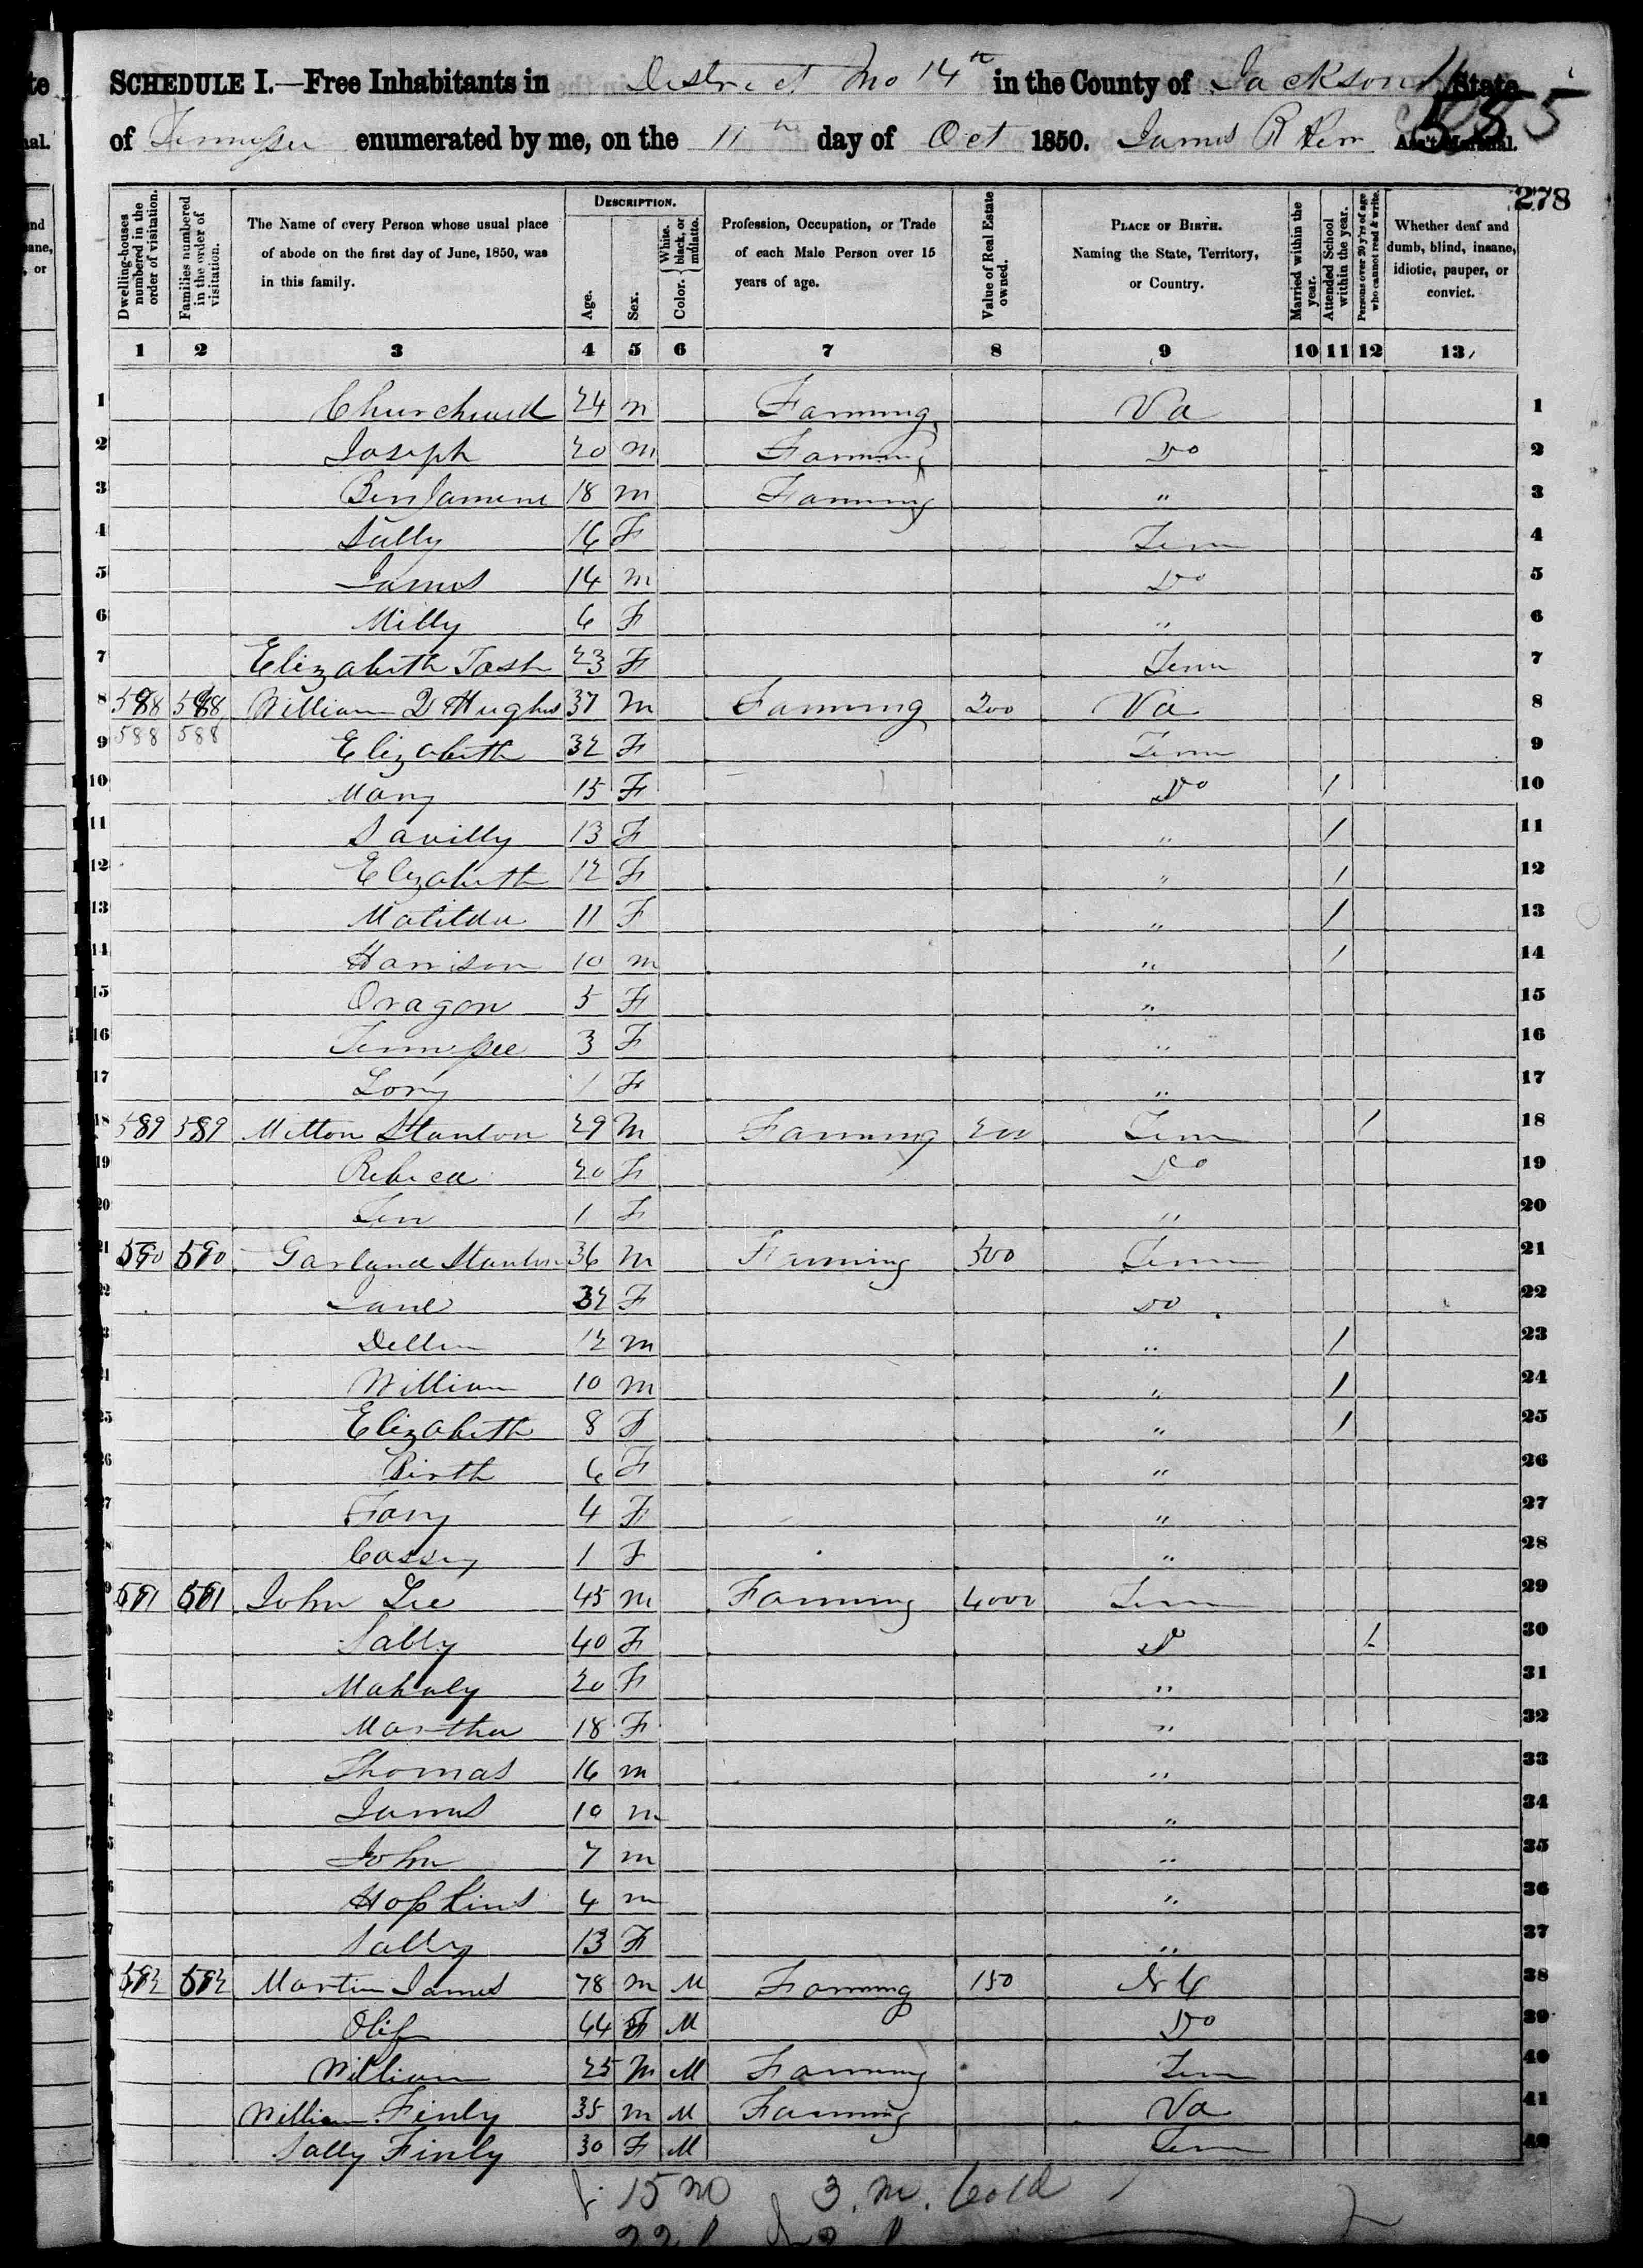 SCHEDULE I.—Free Inhabitants in District No 14th in the County of Jackson State
of Tennessee enumerated by me, on the 11th day of Oct 1850. James R Ass't Marshal.
278
Dwelling-houses numbered in the order of visitation.
Families numbered in the order of visitation.
The Name of every Person whose usual place of abode on the first day of June, 1850, was in this family.
DESCRIPTION.
Age.
Sex.
Color. { White, black, or mulatto.
Profession, Occupation, or Trade of each Male Person over 15 years of age.
Value of Real Estate owned.
PLACE OF BIRTH. Naming the State, Territory, or Country.
Married within the year.
Attended School within the year.
Persons over 20 y'rs of age who cannot read & write.
Whether deaf and dumb, blind, insane, idiotic, pauper, or convict.
1 2 3 4 5 6 7 8 9 10 11 12 13
1 Churchwell 24 m Farming Va 1
2 Joseph 20 m Farming Do 2
3 Benjamine 18 m Farming " 3
4 Sally 16 F Tenn 4
5 James 14 m Do 5
6 Milly 6 F " 6
7 Elizabeth Tash 23 F Tenn 7
8 588 588 William D Hughes 37 m Farming 200 Va 8
9 588 588 Elizabeth 32 F Tenn 9
10 Mary 15 F Do / 10
11 Savilly 13 F " / 11
12 Elizabeth 12 F " / 12
13 Matilda 11 F " / 13
14 Harrison 10 m " / 14
15 Oragon 5 F " 15
16 Tennessee 3 F " 16
17 Lory 1 F " 17
18 589 589 Milton Stanton 29 m Farming 200 Tenn / 18
19 Rebeca 20 F Do 19
20 1 F " 20
21 590 590 Garland Stanton 36 m Farming 500 Tenn 21
22 Jane 32 F Do 22
23 12 m " / 23
24 William 10 m " / 24
25 Elizabeth 8 F " / 25
26 Birth 6 F " 26
27 Fany 4 F " 27
28 Cassey 1 F " 28
29 591 591 John Lee 45 m Farming 4000 Tenn 29
30 Sally 40 F D / 30
31 Mahaly 20 F " 31
32 Martha 18 F " 32
33 Thomas 16 m " 33
34 James 10 m " 34
35 John 7 m " 35
36 Hopkins 4 m " 36
37 Sally 13 F " 37
38 592 592 Martin James 78 m M Farming 150 N C 38
39 44 F M Do 39
40 William 25 m M Farming Tenn 40
41 William Finly 35 m M Farming Va 41
Sally Finly 30 F M Tenn 42
15 m 3. m. Cold